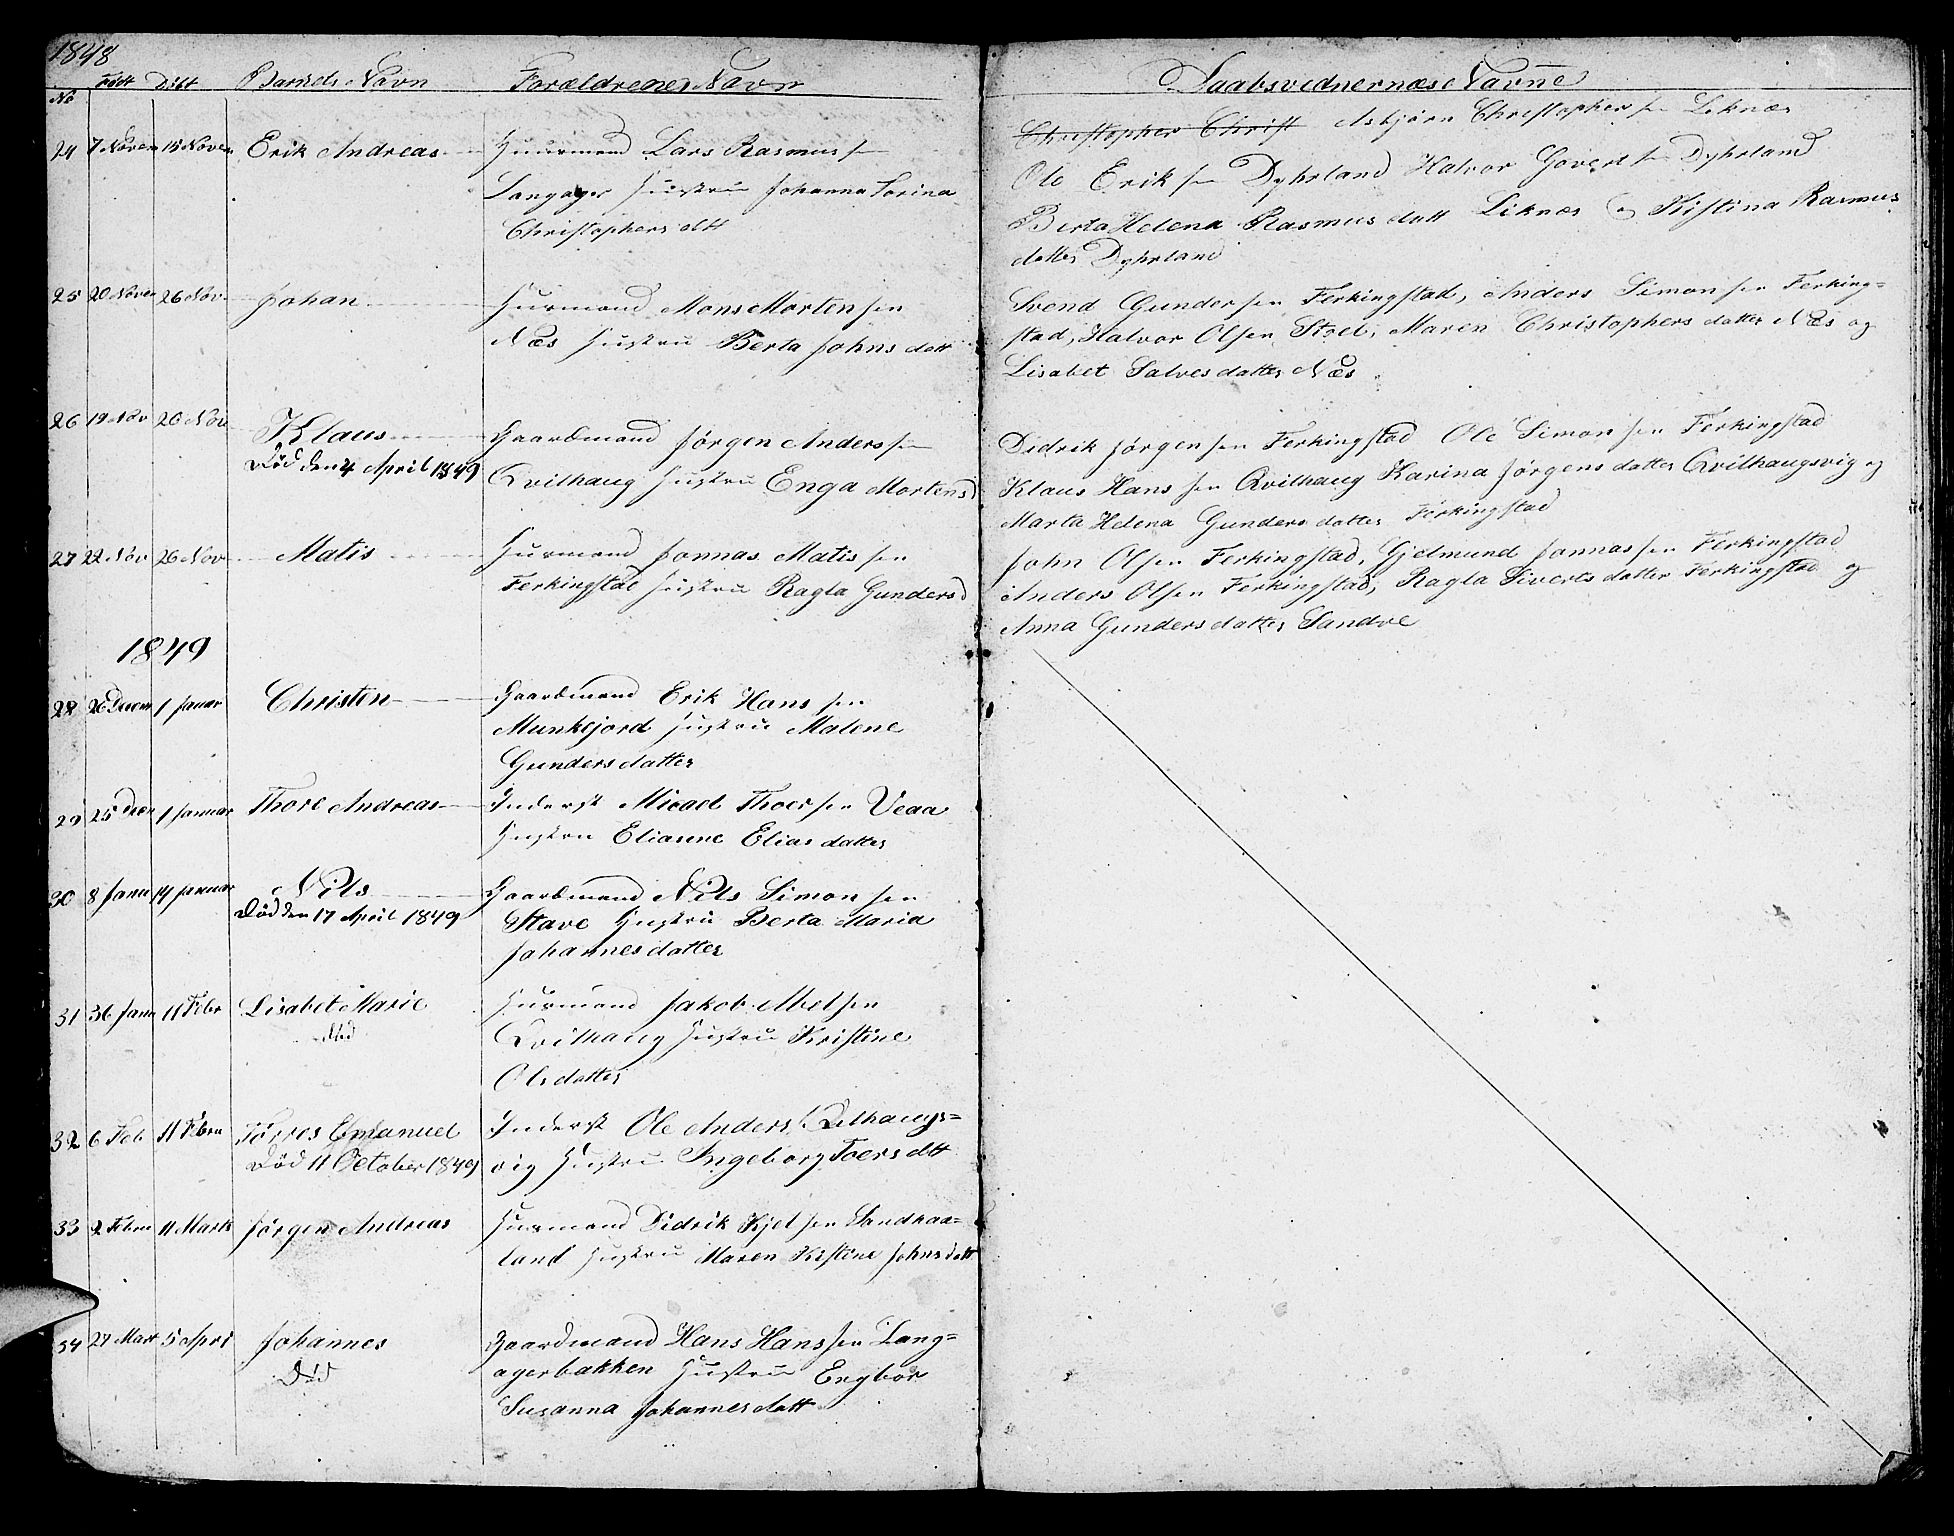 1848
No Født Døbt Barnets Navn Forældrenes Navn
24 7 Noven 15 Noven Erik Andreas Huusmand Lars Rasmussen
Langager Hustru Johanna Serina
Christophersdtt
25 20 Noven 26 Nov Johan Husmand Mons Mortensen
Næs Hustru Berta Johnsdatt
26 19 Nov 26 Nov Klaus Gaardmand Jørgen Anderssen
Død den 4 April 1849 Qvilhaug Hustru Enga Mortensd
27 22 Nov 26 Nov Matis Husmand Jonnas Matissen
Ferkingstad Hustru Ragla Gundersd
1849
28 26 Decem 1 Januar Christen Gaardmand Erik Hanssen
Munkejord Hustru Malene
Gundersdatter
29 25 Decen 1 Januar Thore Andreas Inderst Micael Thoersen Veaa
Hustru Elianne Eliasdatter
30 8 Janu 14 Januar Nils Gaardmand Nils Simonsen
Død den 17 April 1849 Stave Hustru Berta Maria
Johannesdatter
31 36 Janu 11 Febr Lisabet Marie Husmand Jakob Abelsen
Død Qvilhaug Hustru Kristine
Olsdatter
32 6 Feb 11 Febru Tørres Emanuel Inderst Ole Anders Qvilhaugs=
Død 11 October 1849 vig Hustru Ingeborg Toersdtt
33 2 Febru 11 Marts Jørgen Andreas Husmand Didrik Kjelsen Sandhaa=
land Hustru Maren Kistine Johnsdatt
34 27 Mart 5 Apri Johannes Gaardmand Hans Hanssen Lang=
Død agerbakken Hustru Engbor
Susanna Johannesdatt
Daabsvednernæs Navne
Christopher Christ Asbjørn Christophersen Liknæs
Ole Eriksen Dyhrland Halvor Govertsen Dyhrland
Berta Helena Rasmusdatt Liknæs og Kistina Rasmus
datter Dyhrland
Svend Gundersen Ferkingstad, Anders Simonsen Ferking=
stad, Halvor Olsen Stoel, Maren Christophersdatter Næs og
Lisabet Salvesdatter Næs
Didrik Jørgensen Ferkingstad Ole Simonsen Ferkingstad
Klaus Hanssen Qvilhaug Karina Jørgensdatter Qvilhaugsvig og
Marta Helena Gundersdatter Ferkingstad
John Olsen Ferkingstad, Gjelmund Jonnassen Ferkingstad
Anders Olsen Ferkingstad, Ragla Sivertsdatter Ferkingstad og
Anna Gundersdatter Sandve